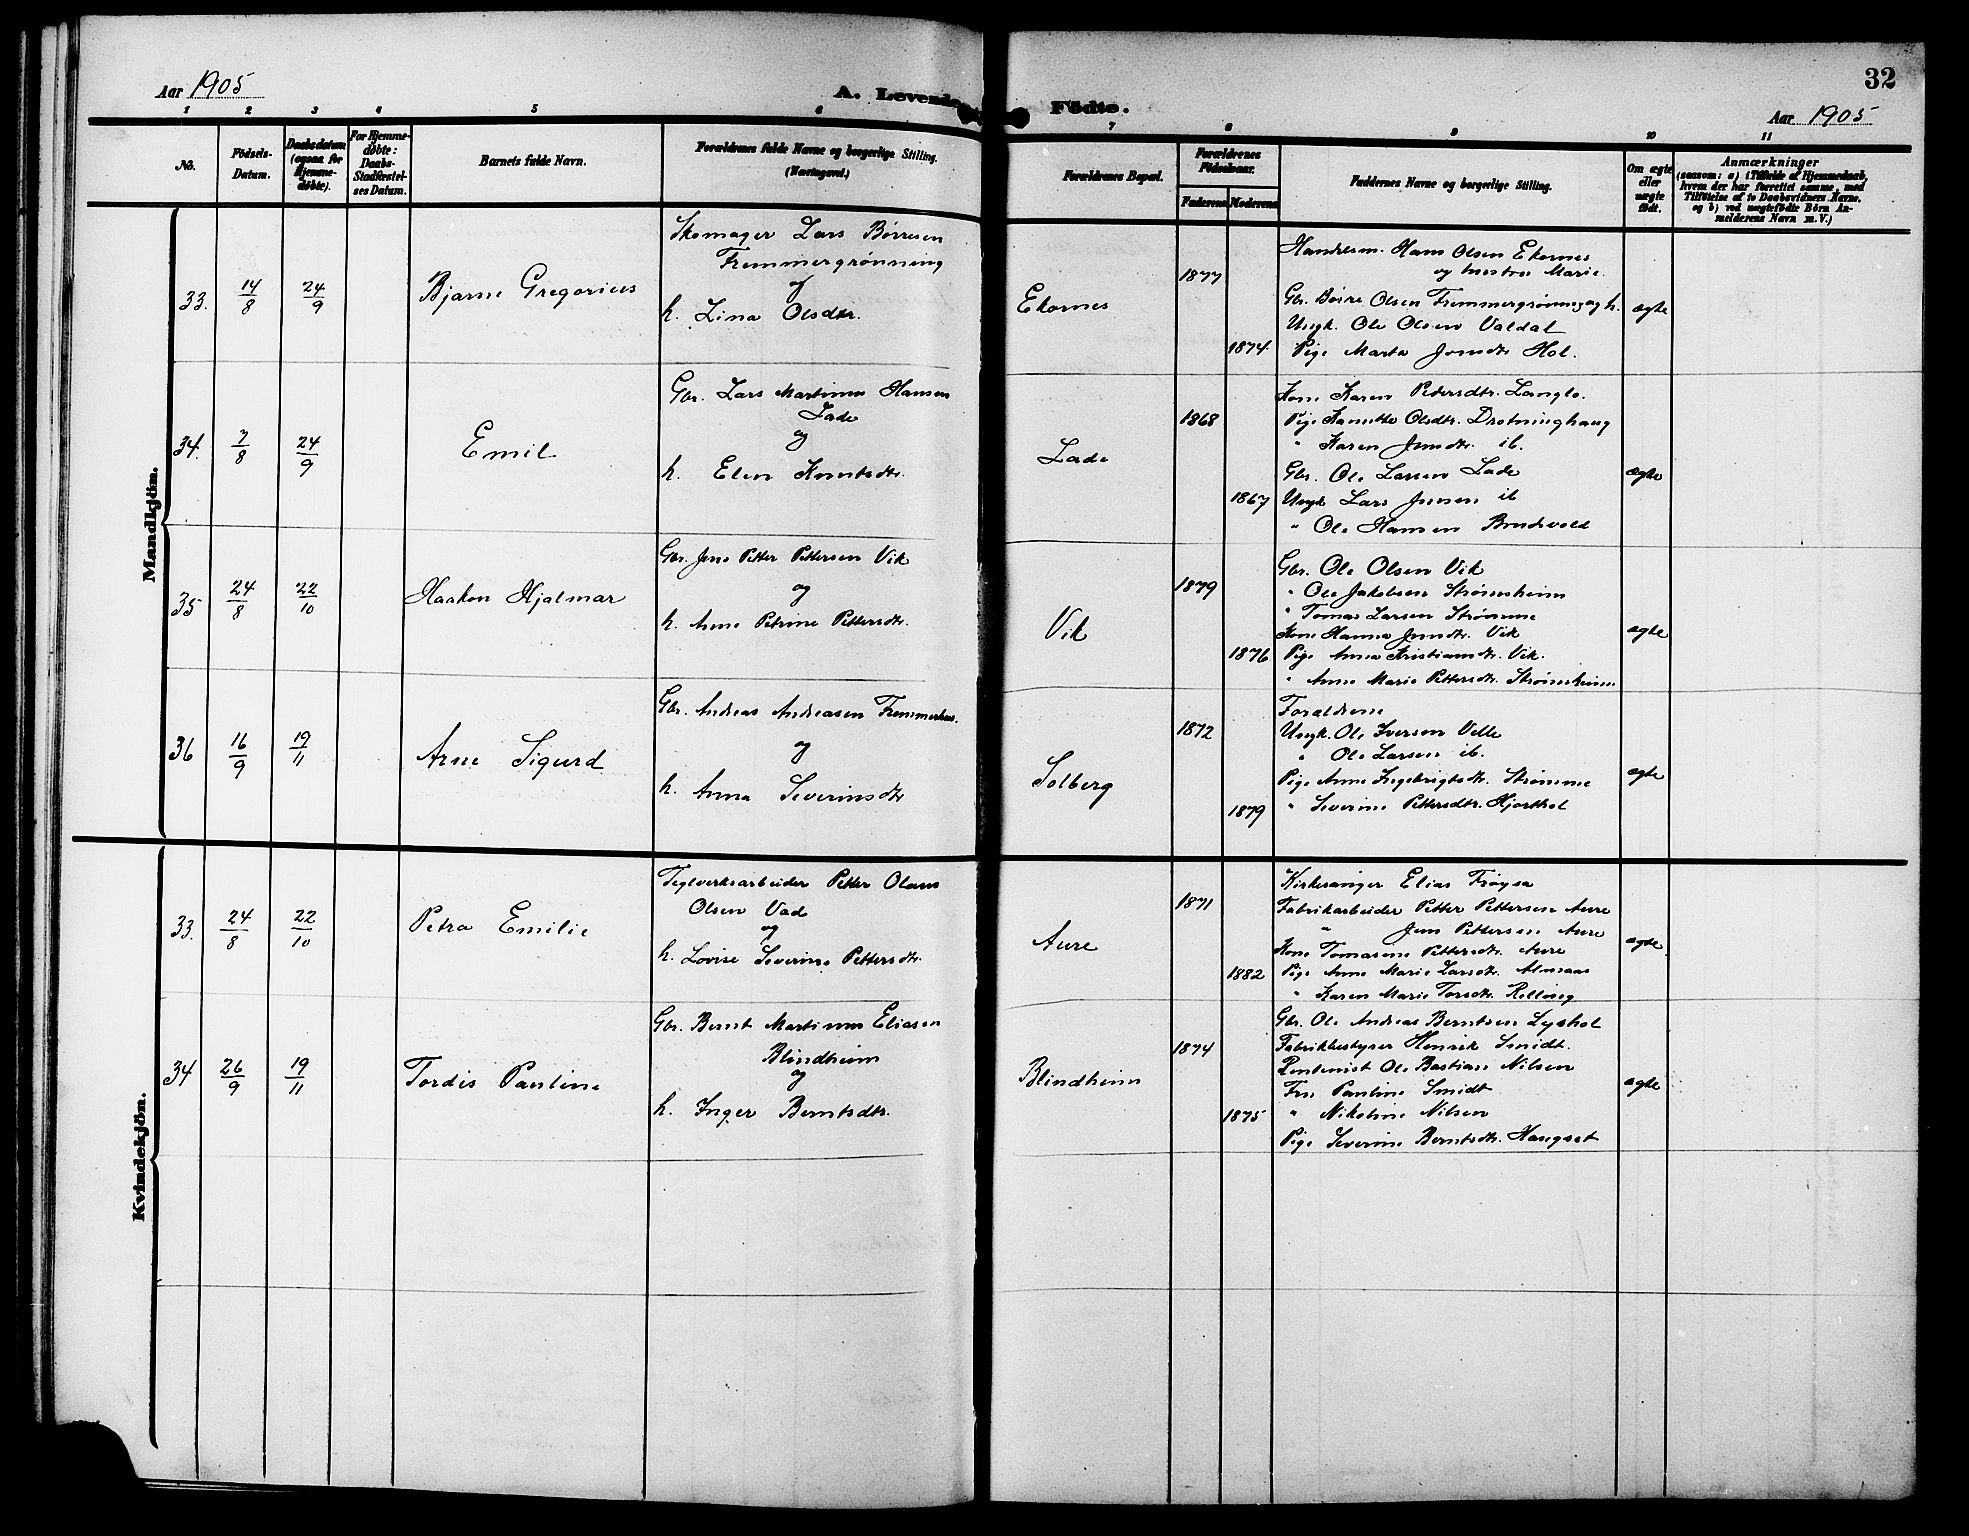 Aar 1905
A. Levende
1 2 3 4 5 6
No.
Födsels-Datum.
Daabsdatum (ogsaa for Hjemme-døbte).
For Hjemme-døbte: Daabs-Stadfæstel-ses Datum.
Barnets fulde Navn.
Forældrenes fulde Navne og borgerlige Stilling.
(Næringsvei.)
Mandkjön.
33. 14/8 24/9 Bjarne Gregorius
Skomager Lars Børresen
Fremmergrønning
og
h. Lina Olsdtr.
34. 7/8 24/9 Emil
Gbr. Lars Martinus Hansen
Lade
og
h. Elen Knutsdtr.
35 24/8 22/10 Haakon Hjalmar
Gbr. Jens Petter Pettersen Vik
og
h. Anne Petrine Pettersdtr.
36 16/9 19/11 Arne Sigurd
Gbr. Andreas Andreasen Fremmerhus.
og
h. Anna Severinsdtr
Kvindekjön.
33. 24/8 22/10 Petra Emilie
Teglverksarbeider Petter Olaus
Olsen Vad
og
h. Lovise Severine Pettersdtr.
34 26/9 19/11 Tordis Pauline
Gbr. Bernt Martinus Eliasen
Blindheim
og
h. Inger Berntsdtr.
32
Födte.
Aar 1905
7 8 9 10 11
Forældrenes Bopæl.
Forældrenes Födselsaar.
Faderens Moderens
Faddernes Navne og borgerlige Stilling.
Om ægte eller uægte født.
Anmærkninger
(saasom: a) i Tilfælde af Hjemmedaab,
hvem der har forrettet samme, med
Tilföielse af to Daabsvidners Navne.
og b) ved uægtefödte Börn An-
melderens Navn m. V.)
Ekornes 1877 1874 ægte
Handelsm. Hans Olsen Ekornes
og hustru Marie.
Gbr. Børre Olsen Fremmergrønning og h.
Ungk. Ole Olsen Valdal
Pige Marta Jonsdtr Hol.
Lade 1868 1867 ægte
Kone Karen Pedersdtr. Langlo.
Pige Hanutte Olsdtr. Drotninghaug
" Karen Jensdtr. ib.
Gbr. Ole Larsen Lade
Ungk Lars Jensen ib
" Ole Hansen Brudevold
Vik 1879 1876 ægte
Gbr. Ole Olsen Vik
" Ole Jakobsen Strømsheim
" Tomas Larsen Strømme
Kone Hanna Jensdtr. Vik
Pige Anna Kristiansdtr. Vik.
" Anne Marie Pettersdtr. Strømsheim
Solberg 1872 1879 ægte
Forældrene
Ungk. Ole Iversen Velle
" Ole Larsen ib.
Pige Anne Ingebrigtsdtr. Strømme
" Severine Pettersdtr. Hjorthol
Aure 1871 1882 ægte
Kirkesanger Elias Frøysa
Fabrikarbeider Petter Pettersen Aure
" Jens Pettersen Aure
Kone Tomasine Pettersdtr. Aure
Pige Anne Marie Larsdtr. Almaas
" Karen Marie Torsdtr. Relling
Blindheim 1874 1875 ægte
Gbr. Ole Andreas Berntsen Lyshol
Fabrikbestyrer Henrik Smidt.
Ole Bastian Nilsen
Fru Pauline Smidt
" Nikoline Nilsen
Pige Severine Berntsdtr. Haugset